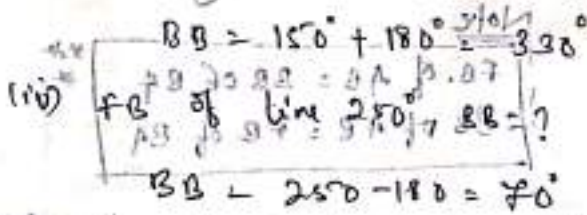 BB = 150° + 180° = 330°
(iv) FB of line 250°, BB = ?
BB = 250 - 180 = 70°